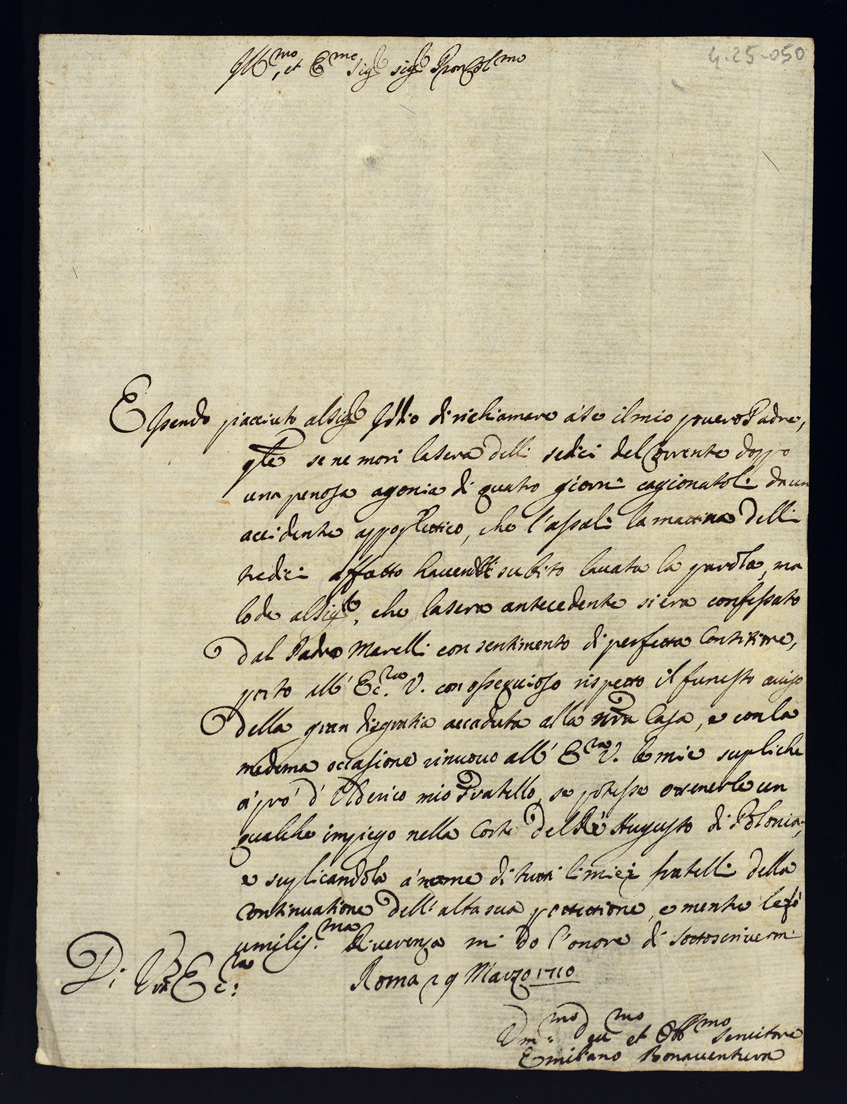 4-25-050
Ill.mo, et Ecc.mo Sig.r Sig.r Pron Col.mo
Essendo piacciuto al Sig.re Iddio di richiamare à se il mio povero Padre,
q.le se ne morì la sera delli sedici del Corrente doppo
una penosa agonia di quatro giorni cagionatoli da un
accidente appopletico, che l'assalì la mattina delli
tredici affatto havendoli subito levata la parola, ma
lode al Sig.re, che la sera antecedente si era confessato
dal Padre Marelli con sentimento di perfetta Contritione,
porto all' Ecc.za V. con ossequioso rispetto il funesto aviso
della gran disgratia accaduta alla n'ra Casa, e con la
medema occasione rinuovo all' E.za V. le mie supliche
à prò d'Olderico mio Fratello, se potesse ottenerle un
qualche impiego nella Corte del Rè Augusto di Polonia,
e suplicandola à nome di tutti li miei fratelli della
continuatione dell' alta sua protettione, e mentre le fò
umiliss.ma riverenza mi do l'onore di sottoscrivermi
Di V'ra Ecc.za
Roma 29 Marzo 1710
Um.mo Dev.mo et Obb.mo Servitore
Emiliano Bonaventura